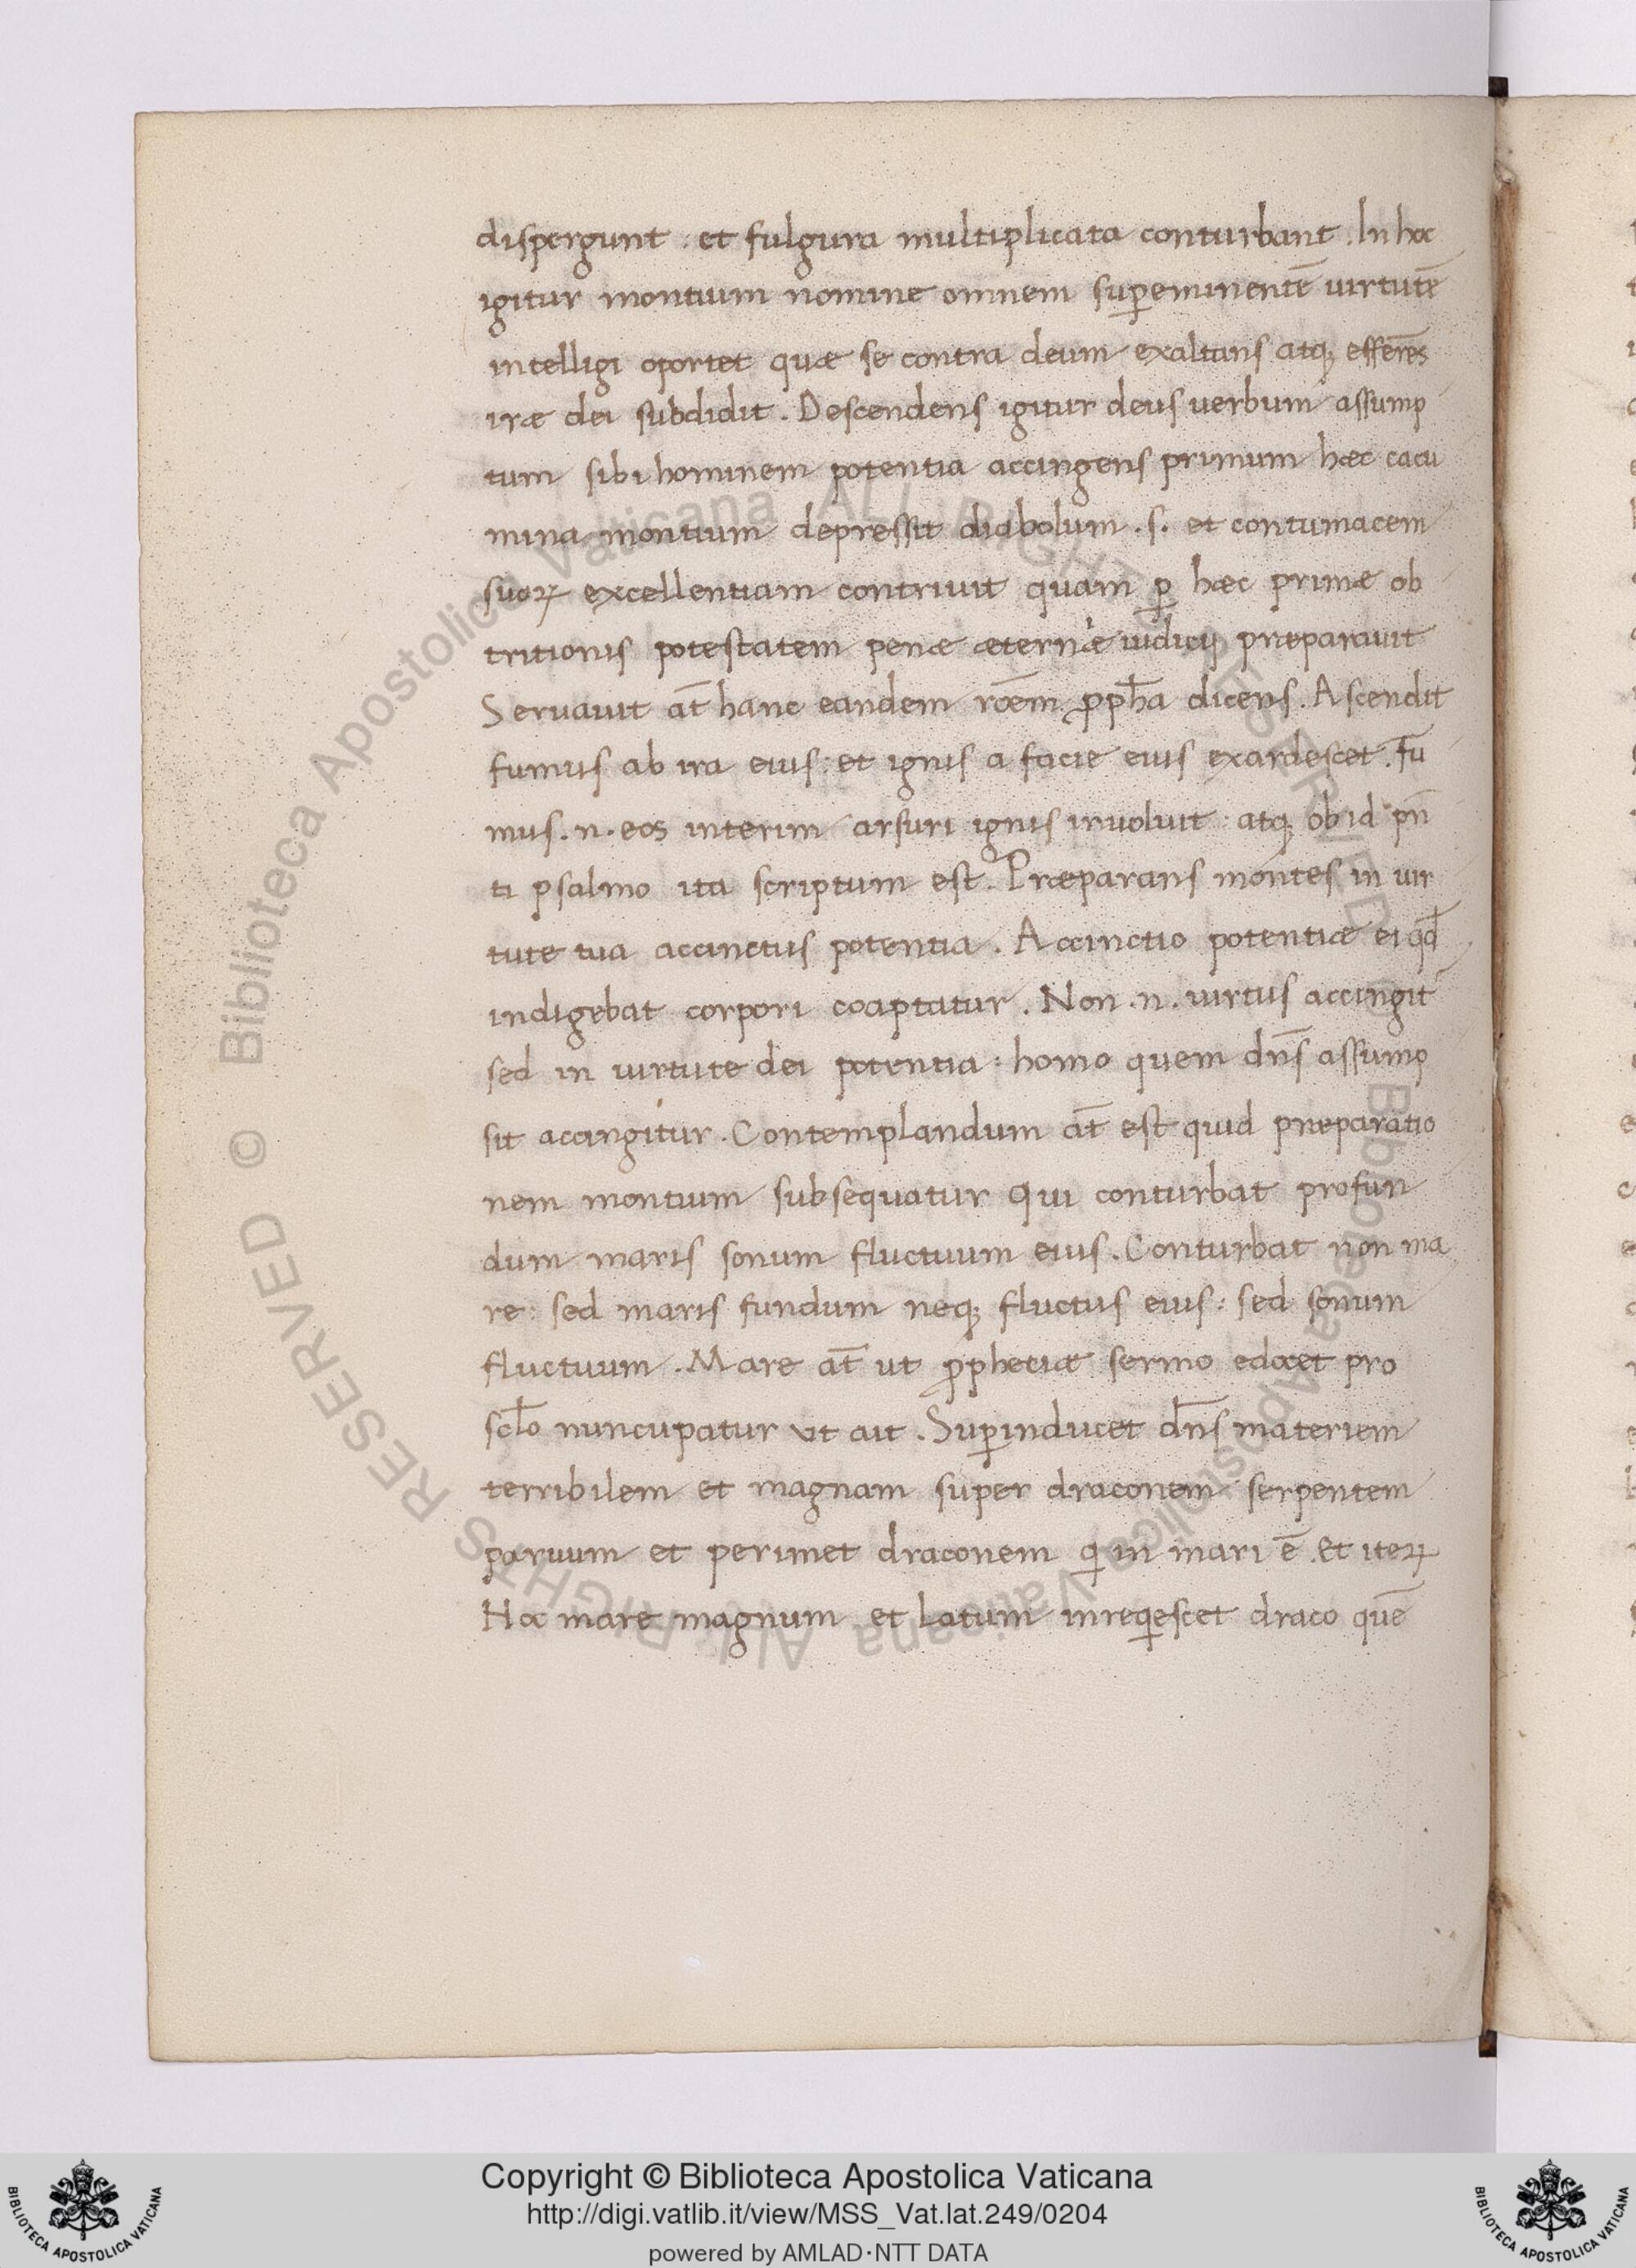 dispergunt : et fulgura multiplicata conturbant . In hoc
igitur montium nomine omnem suꝑeminentē uirtutē
intelligi oportet quæ se contra deum exaltans atqꝫ efferēs
iræ dei subdidit . Descendens igitur deus uerbum assump
tum sibi hominem potentia accingens primum hæc cacu
mina montium depressit diabolum . s . et contumacem
suoꝝ excellentiam contriuit quam ꝑ hæc primæ ob
tritionis potestatem penæ æternæ iudicij præparauit
Seruauit at̄ hanc eandem rōem ꝓph̄a dicens . Ascendit
fumus ab ira eius : et ignis a facie eius exardescet . Fu
mus . n . eos interim arsuri ignis inuoluit : atqꝫ ob id pn̄
ti psalmo ita scriptum est . Præparans montes in uir
tute tua accinctus potentia . Accinctio potentiæ ei qd̄
indigebat corpori coaptatur . Non . n . uirtus accingit
sed in uirtute dei potentia : homo quem dn̄s assump
sit accingitur . Contemplandum at̄ est quid præparatio
nem montium subsequatur qui conturbat profun
dum maris sonum fluctuum eius . Conturbat non ma
re : sed maris fundum neqꝫ fluctus eius : sed sonum
fluctuum . Mare at̄ ut ꝓpheciæ sermo edocet pro
scl̄o nuncupatur ut ait . Suꝑinducet dn̄s materiem
terribilem et magnam super draconem serpentem
paruum et perimet draconem qͥ in mari ē . et iteꝝ
Hoc mare magnum et latum inreqͥescet draco quē
Copyright © Biblioteca Apostolica Vaticana
http://digi.vatlib.it/view/MSS_Vat.lat.249/0204
powered by AMLAD·NTT DATA
BIBLIOTECA APOSTOLICA VATICANA
BIBLIOTECA APOSTOLICA VATICANA
© Biblioteca Apostolica Vaticana ALL RIGHTS RESERVED © Biblioteca Apostolica Vaticana ALL RIGHTS RESERVED